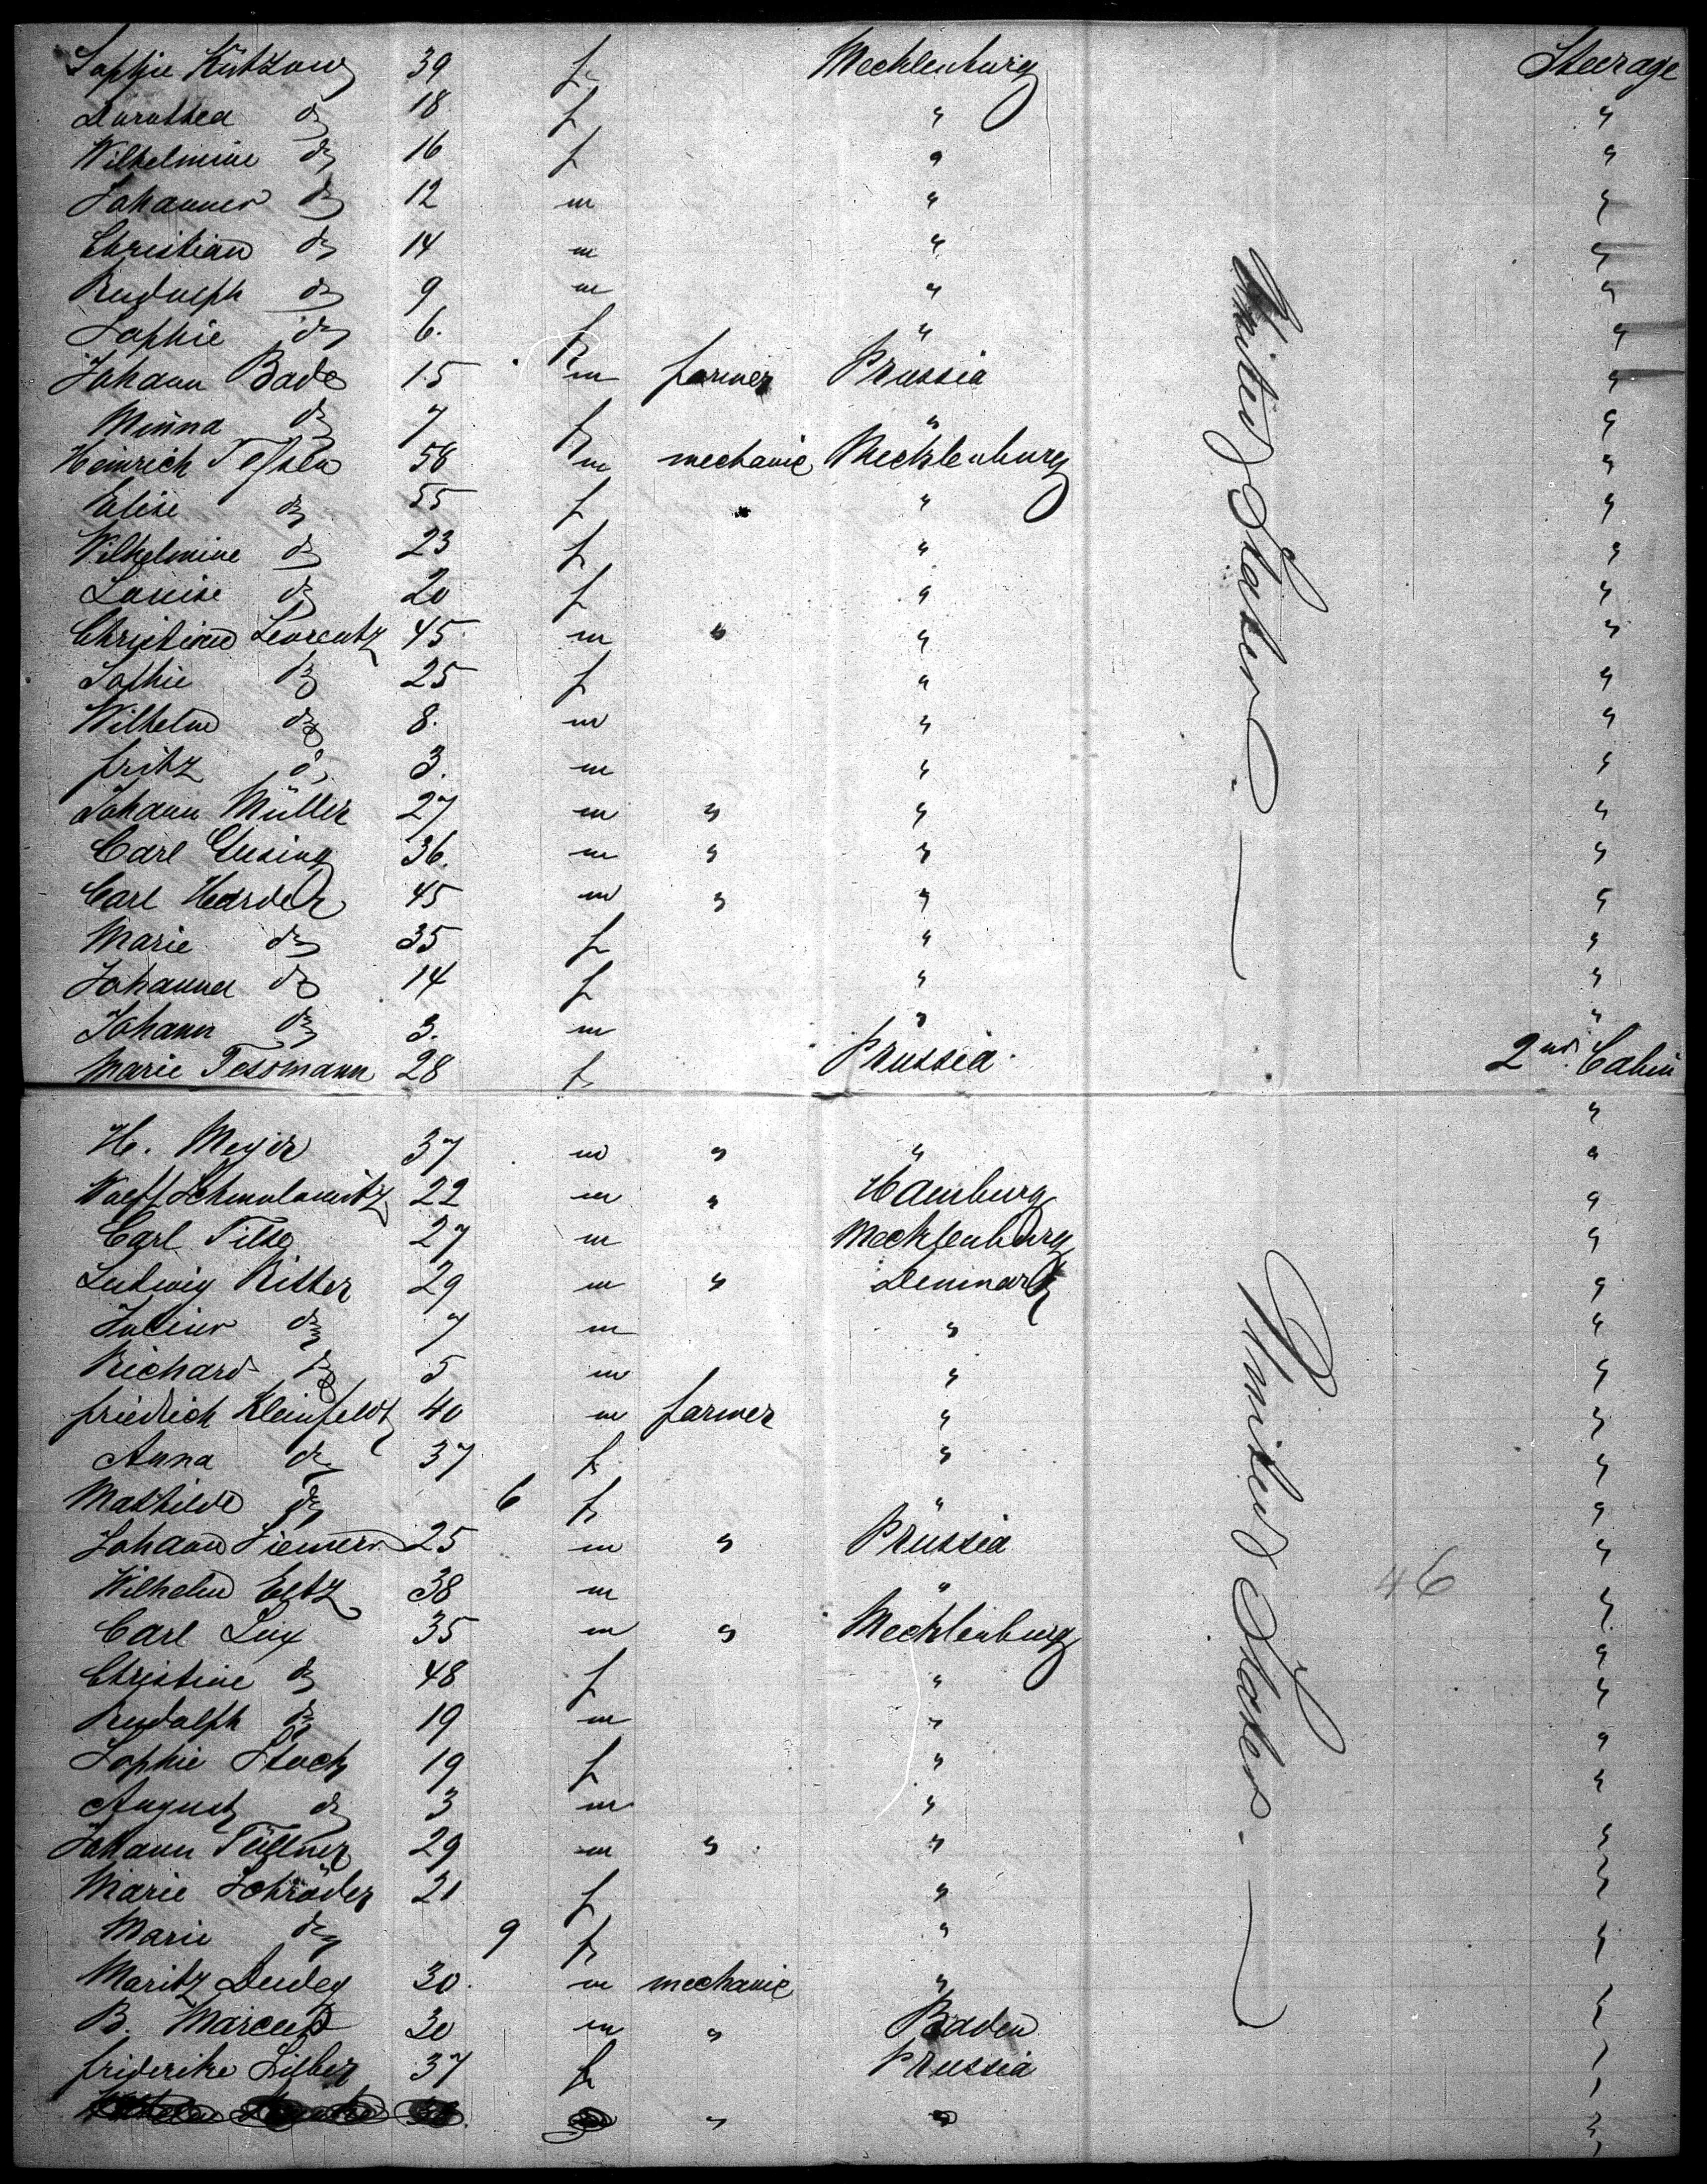 Sophie Kützow 39 f Mecklenburg Steerage
Dorothea do 18 f " "
Wilhelmine do 16 f " "
Johannes do 12 m " "
Christian do 14 m " "
Rudolph do 9 m " "
Sophie do 6. f " "
Johann Bade 15 m farmer Prussia "
Minna do 7 f " "
Heinrich 58 m mechanic Mecklenburg "
Elise do 55 f " "
Wilhelmine do 23 f " "
Louise do 20 f " "
Christian Lorentz 45 m " " "
Sophie do 25 f " "
Wilhelm do 8. m " "
fritz do 3. m " "
Johann Müller 27 m " " "
Carl Giesing 36. m " " "
Carl Harder 45 m " " "
Marie do 35 f " "
Johanna do 14 f " "
Johann do 3. m " "
Marie Tessmann 28 f Prussia 2nd. Cabin
United States
H. Meyer 37 m " " "
Wolff 22 m " Hamburg "
Carl Tilse 27 m Mecklenburg "
Ludwig Ritter 29 m " Denmark "
Julius do 7 m " "
Richard do 5 m " "
friedrich Kleinfeldt 40 m farmer " "
Anna do 37 f " "
Mathilde do 6 f " "
Johann Siemers 25 m " Prussia "
Wilhelm Eltz 38 m " "
Carl Lux 35 m " Mecklenburg "
Christine do 48 f " "
Rudolph do 19 m " "
Sophie Stock 19 f " "
August do 3 m " "
Johann Tüllner 29 m " " "
Marie Schröder 21 f " "
Marie do 9 f " "
Moritz 30. m mechanic " "
B. Marcus 30 m " Baden "
friderike Silber 37 f Prussia "
United States
46